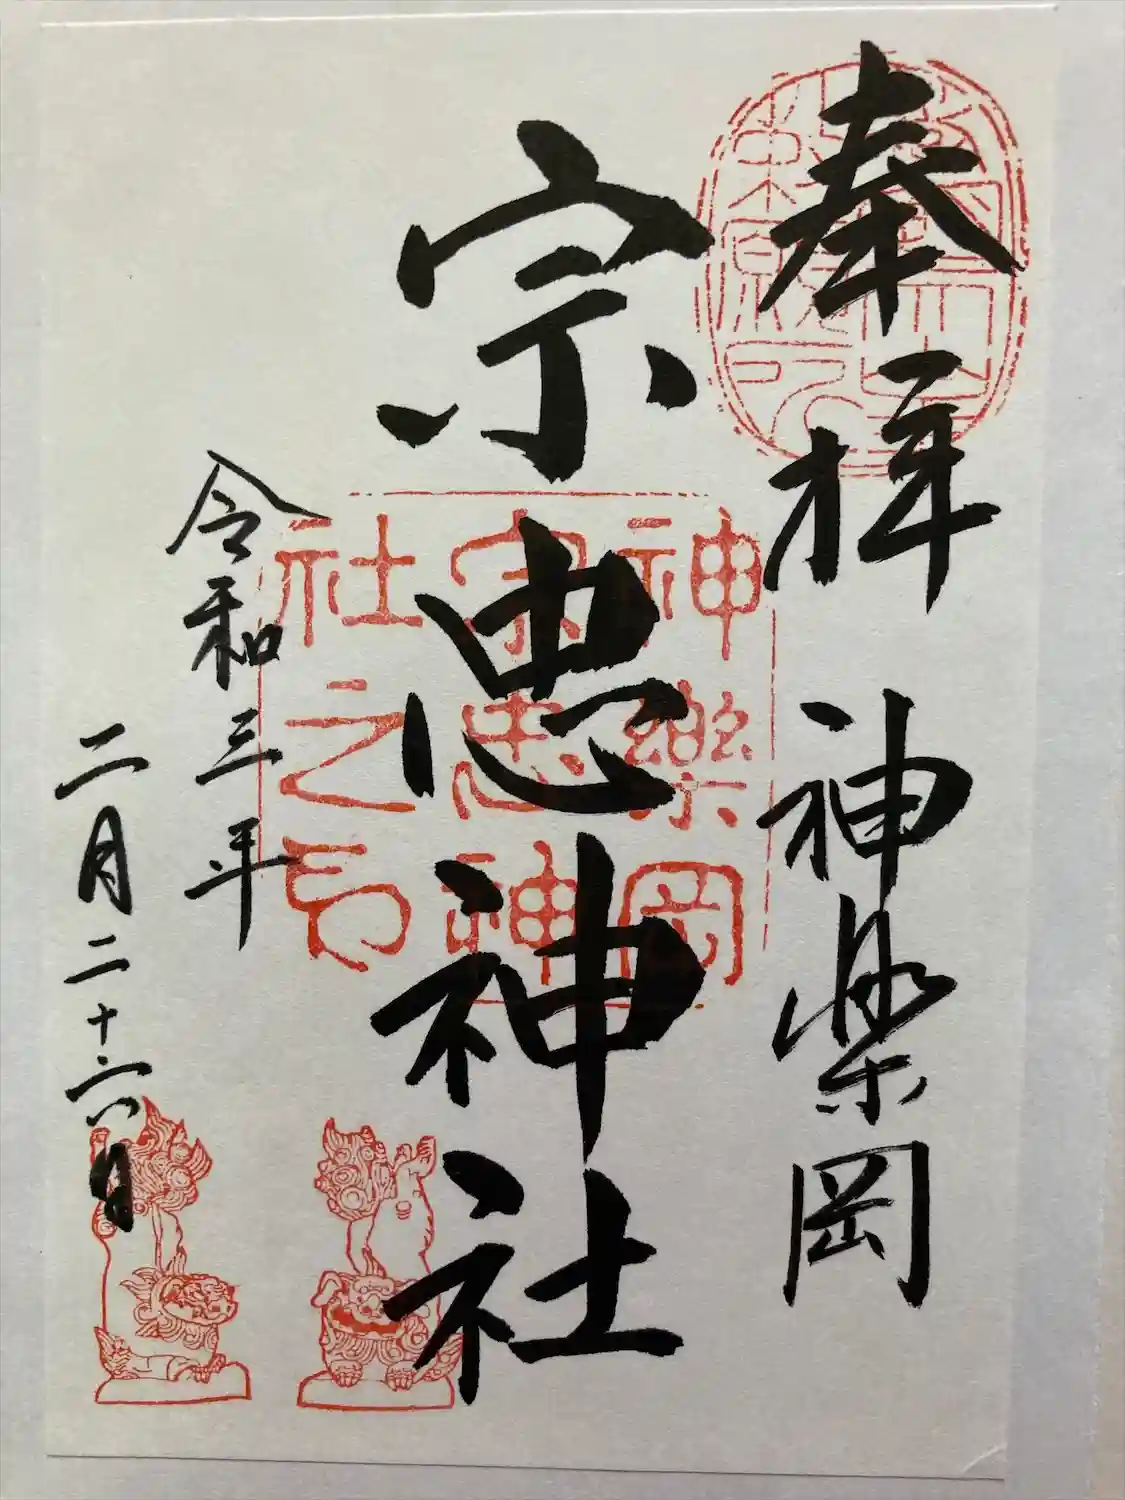 奉拝 神楽岡
宗忠神社
神樂岡
宗忠神
社之印
令和三年
二月二十六日